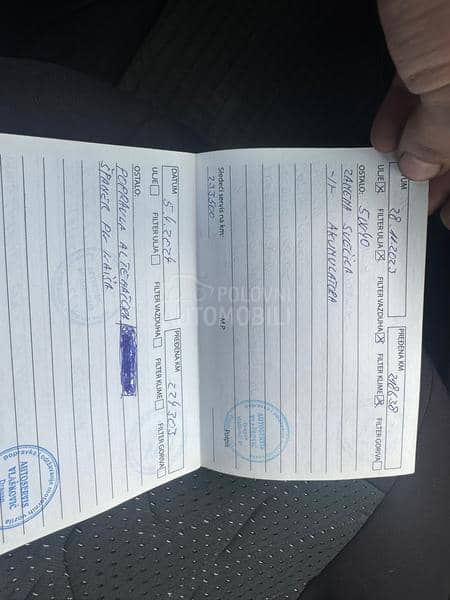 DATUM 28.11.2023 PREĐENA KM 218638
ULJE ☒ FILTER ULJA ☒ FILTER VAZDUHA ☒ FILTER KLIME ☒ FILTER GORIVA ☐
OSTALO: 5W40
ZAMENA SVEĆICA
-//- AKUMULATORA
Sledeći servis na km:
233.500
M.P.
Potpis
AUTOSERVIS
VLAŠKOVIĆ
DATUM 5.4.2024 PREĐENA KM 224303
ULJE ☐ FILTER ULJA ☐ FILTER VAZDUHA ☐ FILTER KLIME ☐ FILTER GORIVA ☐
OSTALO:
POPRAVKA ALTENATORA
ŠPANER PK KAIŠA
AUTOSERVIS
VLAŠKOVIĆ
POLOVNI
AUTOMOBILI